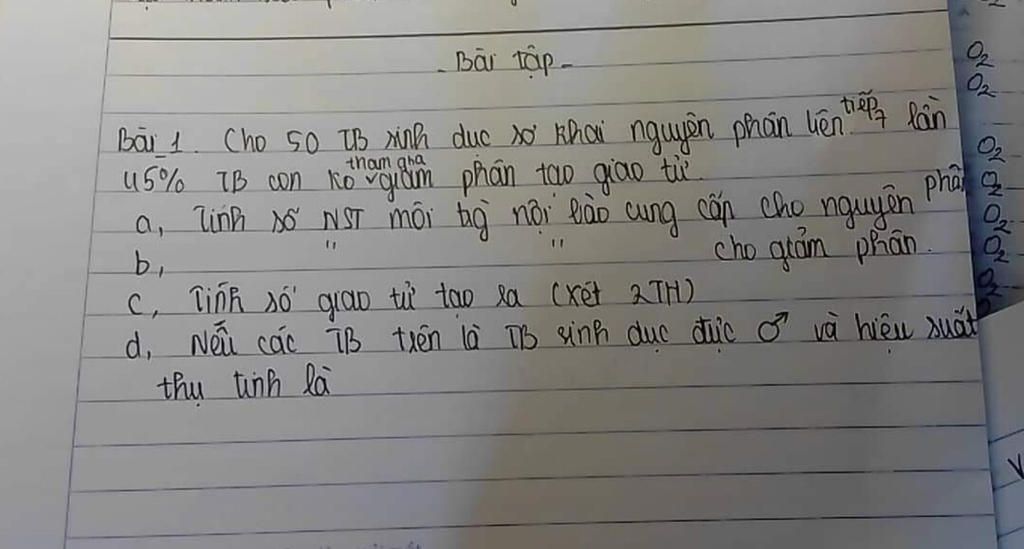 - Bài tập -
Bài 1. Cho 50 TB sinh dục sơ khai nguyên phân liên tiếp 7 lần
45% TB con ko tham gia giảm phân tạo giao tử.
a, Tính số NST môi trg nội bào cung cấp cho nguyên phân
b, " " cho giảm phân.
c, Tính số giao tử tạo ra (xét 2TH)
d, Nếu các TB trên là TB sinh dục đực ♂ và hiệu suất
thụ tinh là
O2
O2
O2
O2
O2
O2
O2